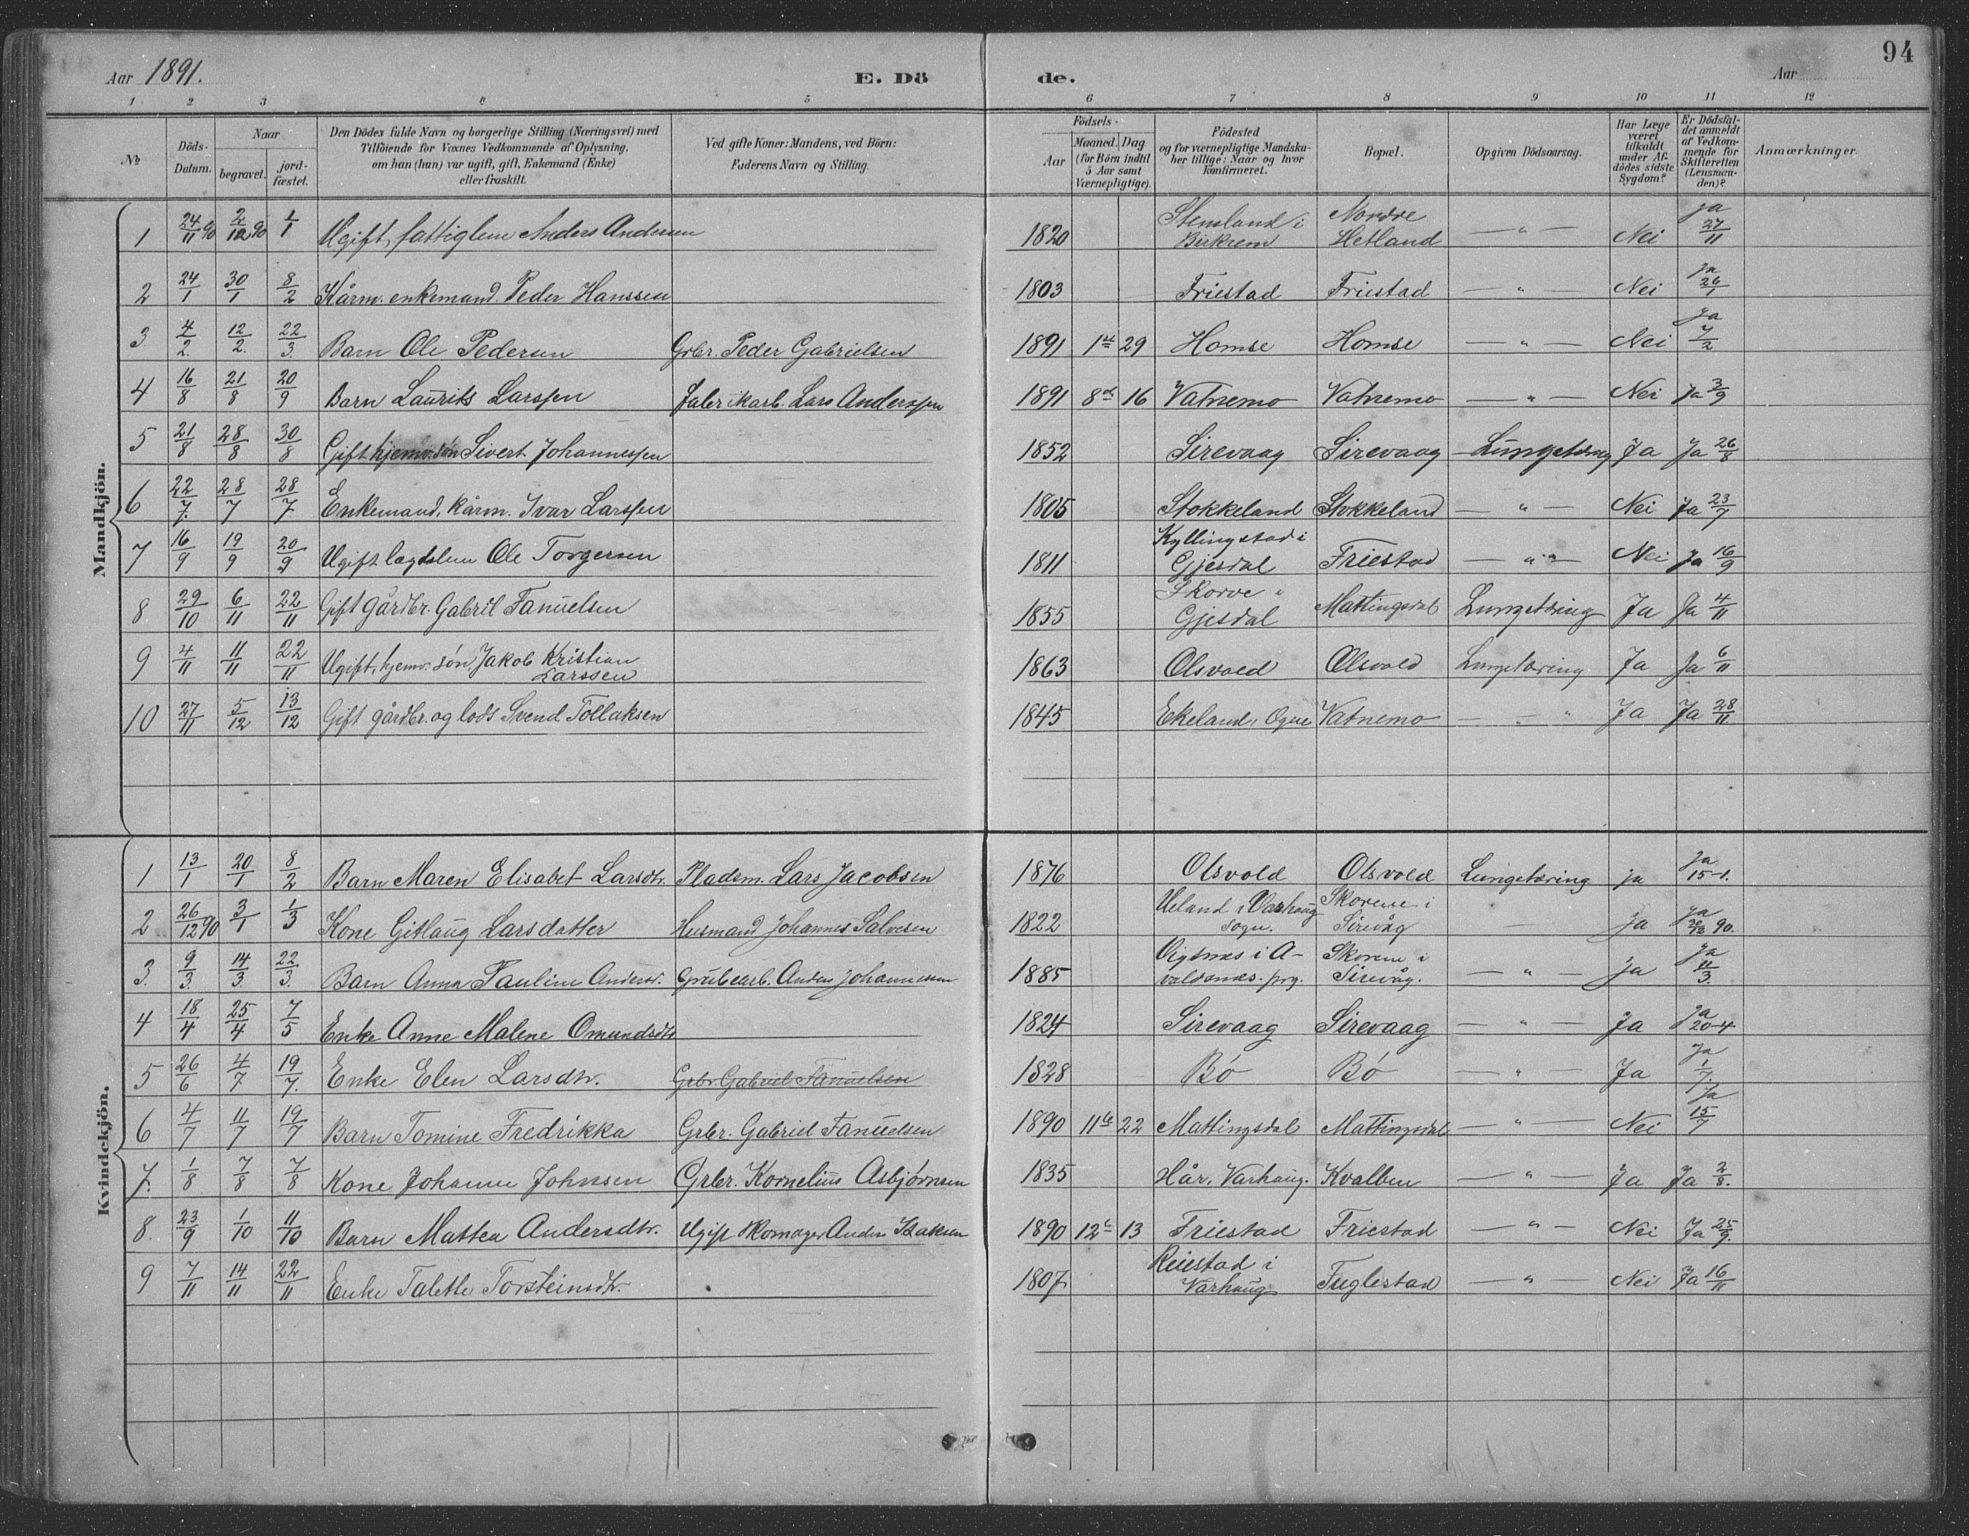 94
Aar 1891. E. Dö de. Aar
1 2 3 4 5 6 7 8 9 10 11 12
No
Döds-Datum.
Naar
begravet.
jord-fæstet.
Den Dödes fulde Navn og borgerlige Stilling (Næringsvei) med
Tilföiende for Voxnes Vedkommende af Oplysning,
om han (hun) var ugift, gift, Enkemand (Enke)
eller fraskilt.
Ved gifte Koner: Mandens, ved Börn:
Faderens Navn og Stilling.
Födsels-
Aar
Maaned. Dag
(for Börn indtil
5 Aar samt
Værnepligtige).
Födested
og for værnepligtige Mandska-
ber tillige: Naar og hvor
konfirmeret.
Bopæl.
Opgiven Dödsaarsag.
Har Læge
været
tilkaldt
under Af-
dödes sidste
Sygdom?
Er Dödsfal-
det anmeldt
af Vedkom-
mende for
Skifteretten
(Lensman-
den)?
Anmærkninger.
Mandkjön.
1 24/11 90 2/12 90 1/1 Ugift, fattiglem Anders Andersen 1820 Stemland i Birkrem Nordre Hetland — " — Nei ja 27/11
2 24/1 30/1 8/2 Kårm. enkemand. Peder Hanssen 1803 Friestad Friestad — " — Nei Ja 26/1
3 4/2. 12/2. 22/3. Barn Ole Pedersen Grbr. Peder Gabrielsen 1891 1 29 Homse Homse — " — Nei Ja 7/2
4 16/8 21/8 20/9 Barn Laurits Larssen Fabrikarb. Lars Anderssen 1891 8 16 Vatnemo Vatnemo — " — Nei Ja 3/9
5 21/8 28/8 30/8 Gift hjemv. søn Sivert Johannessen 1852 Sirevaag Sirevaag Lungetæring Ja Ja 26/8
6 22/7. 28/7 28/7 Enkemand, kårm. Ivar Larssen 1805 Stokkeland Stokkeland — " — Nei Ja 23/7
7 16/9 19/9 20/9 Ugift lægdslem Ole Torgersen 1811 Kyllingstad i Gjesdal Friestad — " — Nei Ja 16/9
8 29/10 6/11 22/11 Gift gårdbr. Gabril Fanuelsen 1855 Skorve i Gjesdal Mattingsdal Lungetæring Ja Ja 4/11
9 4/11 11/11 22/11 Ugift, hjemv. søn Jakob Kristian Larssen 1863 Olsvold Olsvold Lungetæring Ja Ja 6/11
10 27/11 5/12 13/12 Gift gårdbr. og lods Svend Tollaksen 1845 Ekeland, Ogne Vatnemo — " — " Ja Ja 28/11.
Kvindekjön.
1 13/1 20/1 8/2 Barn Maren Elisabet Larsdtr. Pladsm. Lars Jacobsen 1876 Olsvold Olsvold Lungetæring ja Ja 15-1.
2 26/12 90 3/1 1/3 Kone Gitlaug Larsdatter Husmand Johannes Salvesen 1822 Ueland i Varhaug Sogn. Skorene i Sirevåg — ja ja 90.
3. 9/3. 14/3. 22/3. Barn Anna Pauline Andersdr. Grubearb. Anders Johannessen 1885 i A-valdsnes. prg. Skorene i Sirevåg. — " — ja Ja 11/3.
4 18/4 25/4 7/5 Enke Anne Malene Omundsdtr. 1824 Sirevaag Sirevaag — " — Ja ja 20-4.
5 26/6 4/7 19/7. Enke Elen Larsdtr. Grbr. Gabriel Fanuelsen 1828 Bø Bø — " — Ja Ja 1/7.
6 4/7 11/7 19/7 Barn Tomine Fredrikka Grbr. Gabriel Fanuelsen 1890 11te 22 Mattingsdal Mattingsdal — " — Nei Ja 15/7
7. 1/8 7/8 7/8 Kone Johanne Johnsen Grbr. Kornelius Asbjørnsen 1835 Hår, Varhaug. Kvalben — " — Ja Ja 2/8.
8. 23/9 1/10 11/10 Barn Mattea Andersdtr. Ugift Skomager Anders Isaksen 1890 12 13 Friestad Friestad — " — Nei Ja 25/9.
9 7/11 14/11 22/11 Enke Talette Torsteinsdtr. 1807 Reiestad i Varhaug Fuglestad — " — Nei Ja 16/11